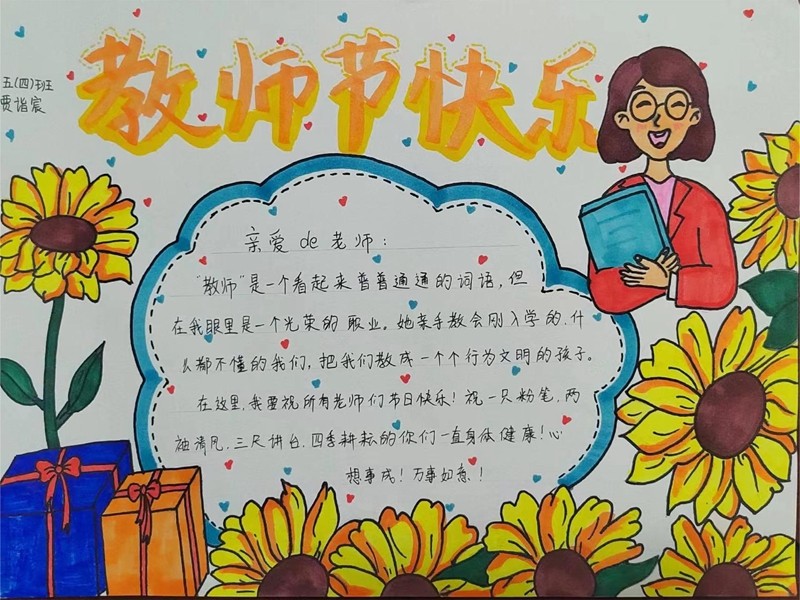 教师节快乐
五(四)班
贾诣宸
亲爱de老师：
"教师"是一个看起来普普通通的词语，但
在我眼里是一个光荣的职业。她亲手教会刚入学的、什
么都不懂的我们，把我们教成一个个行为文明的孩子。
在这里，我要祝所有老师们节日快乐！祝一只粉笔，两
袖清风，三尺讲台，四季耕耘的你们一直身体健康！心
想事成！万事如意！